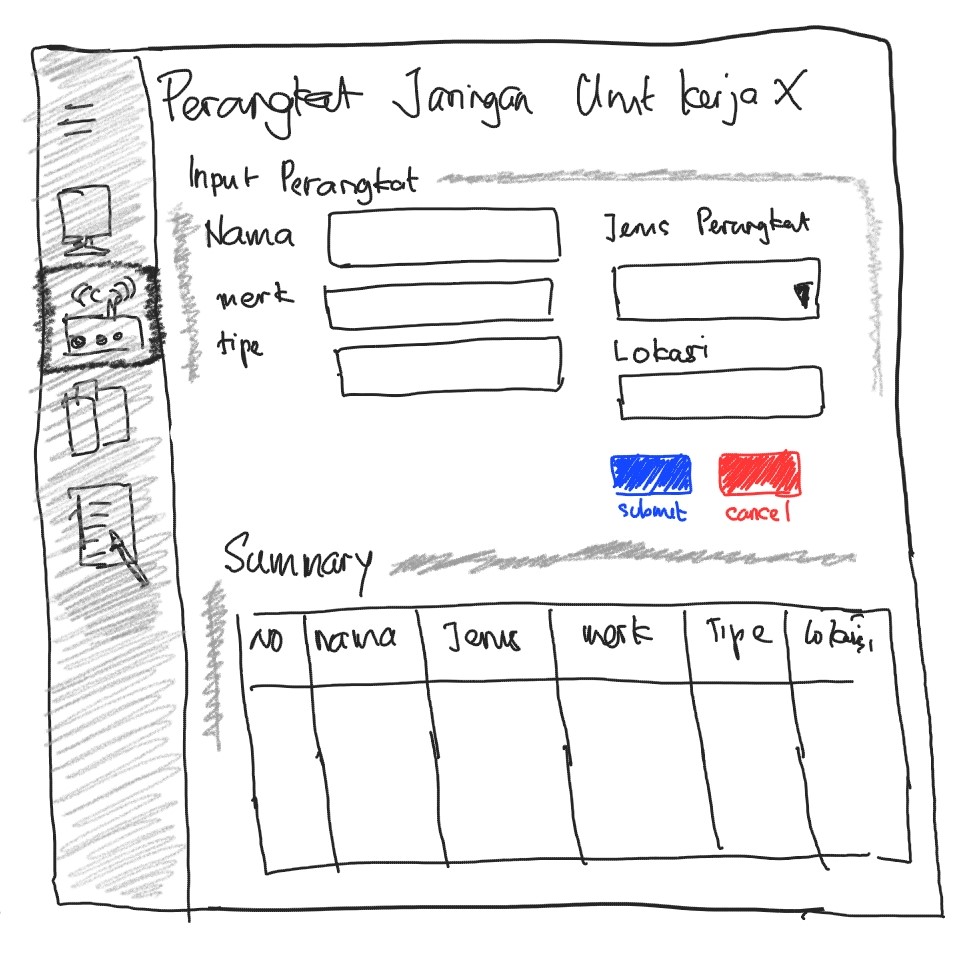 Perangkat Jaringan Unit kerja X
Input Perangkat
Nama
Jenis Perangkat
merk
tipe
Lokasi
submit
cancel
Summary
No nama Jenis merk Tipe Lokasi